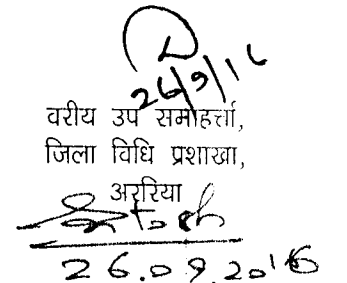 26/9/16
वरीय उप समाहर्त्ता,
जिला विधि प्रशाखा,
अररिया
26.09.2016